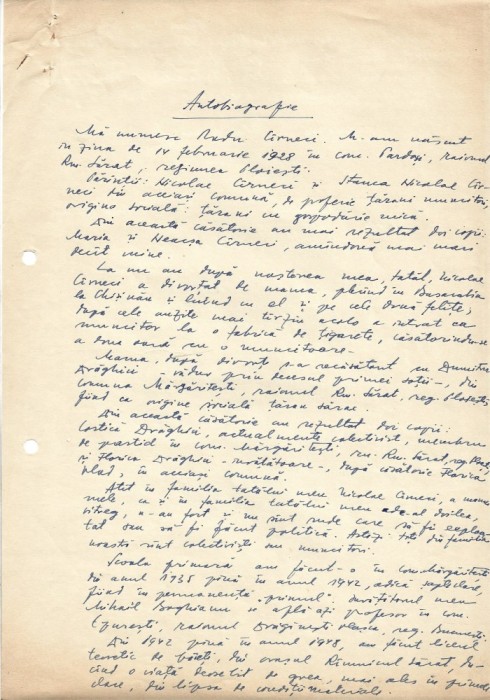 Autobiografie
Mă numesc Radu Cirneci. M-am născut
în ziua de 14 februarie 1928 în com. Pardoși, raionul
Rm. Sărat, regiunea Ploiești.
Părinții: Nicolae Cirneci și Stanca Nicolae Cir-
neci din aceiași comună, de profesie țărani muncitori,
origine socială: țărani cu gospodărie mică.
Din această căsătorie au mai rezultat doi copii:
Maria și Neacșa Cirneci, amîndouă mai mari
decît mine.
La un an după nașterea mea, tatăl, Nicolae
Cirneci a divorțat de mama, plecînd în Basarabia
la Chișinău și luînd cu el și pe cele două fetițe,
după cele auzite mai tîrziu acolo a intrat ca
muncitor la o fabrică de țigarete, căsătorindu-se
a doua oară cu o muncitoare -
Mama, după divorț s-a recăsătorit cu Dumitru
Drăghici - văduv prin decesul primei soții -, din
comuna Mărgăritești, raionul Rm. Sărat, reg. Ploiești
fiind ca origine socială țăran sărac.
Din această căsătorie au rezultat doi copii:
Costică Drăghici, actualmente colectivist, membru
de partid în com. Mărgăritești, rn. Rm. Sărat, reg. Ploiești
și Florica Drăghici - învățătoare -, după căsătorie Florica
Vlad, în aceiași comună.
Atît în familia tatălui meu Nicolae Cirneci, a mamei
mele, cît și în familia tatălui meu de-al doilea,
vitreg, n-au fost și nu sunt rude care să fi exploa-
tat sau să fi făcut politică. Astăzi toți din familia
noastră sînt colectiviști sau muncitori.
Școala primară am făcut-o în com. Mărgăritești
din anul 1935 pînă în anul 1942, adică șapte clase,
fiind în permanență "primul". Învățătorul meu
Mihail Boghianu se află azi profesor în com.
raionul Drăgănești Vlașca, reg. București.
Din 1942 pînă în anul 1948, am făcut liceul
teoretic de băieți, din orașul Rîmnicul Sărat, du-
cînd o viață deosebit de grea, mai ales în primele
clase, din lipsa de condiții materiale.